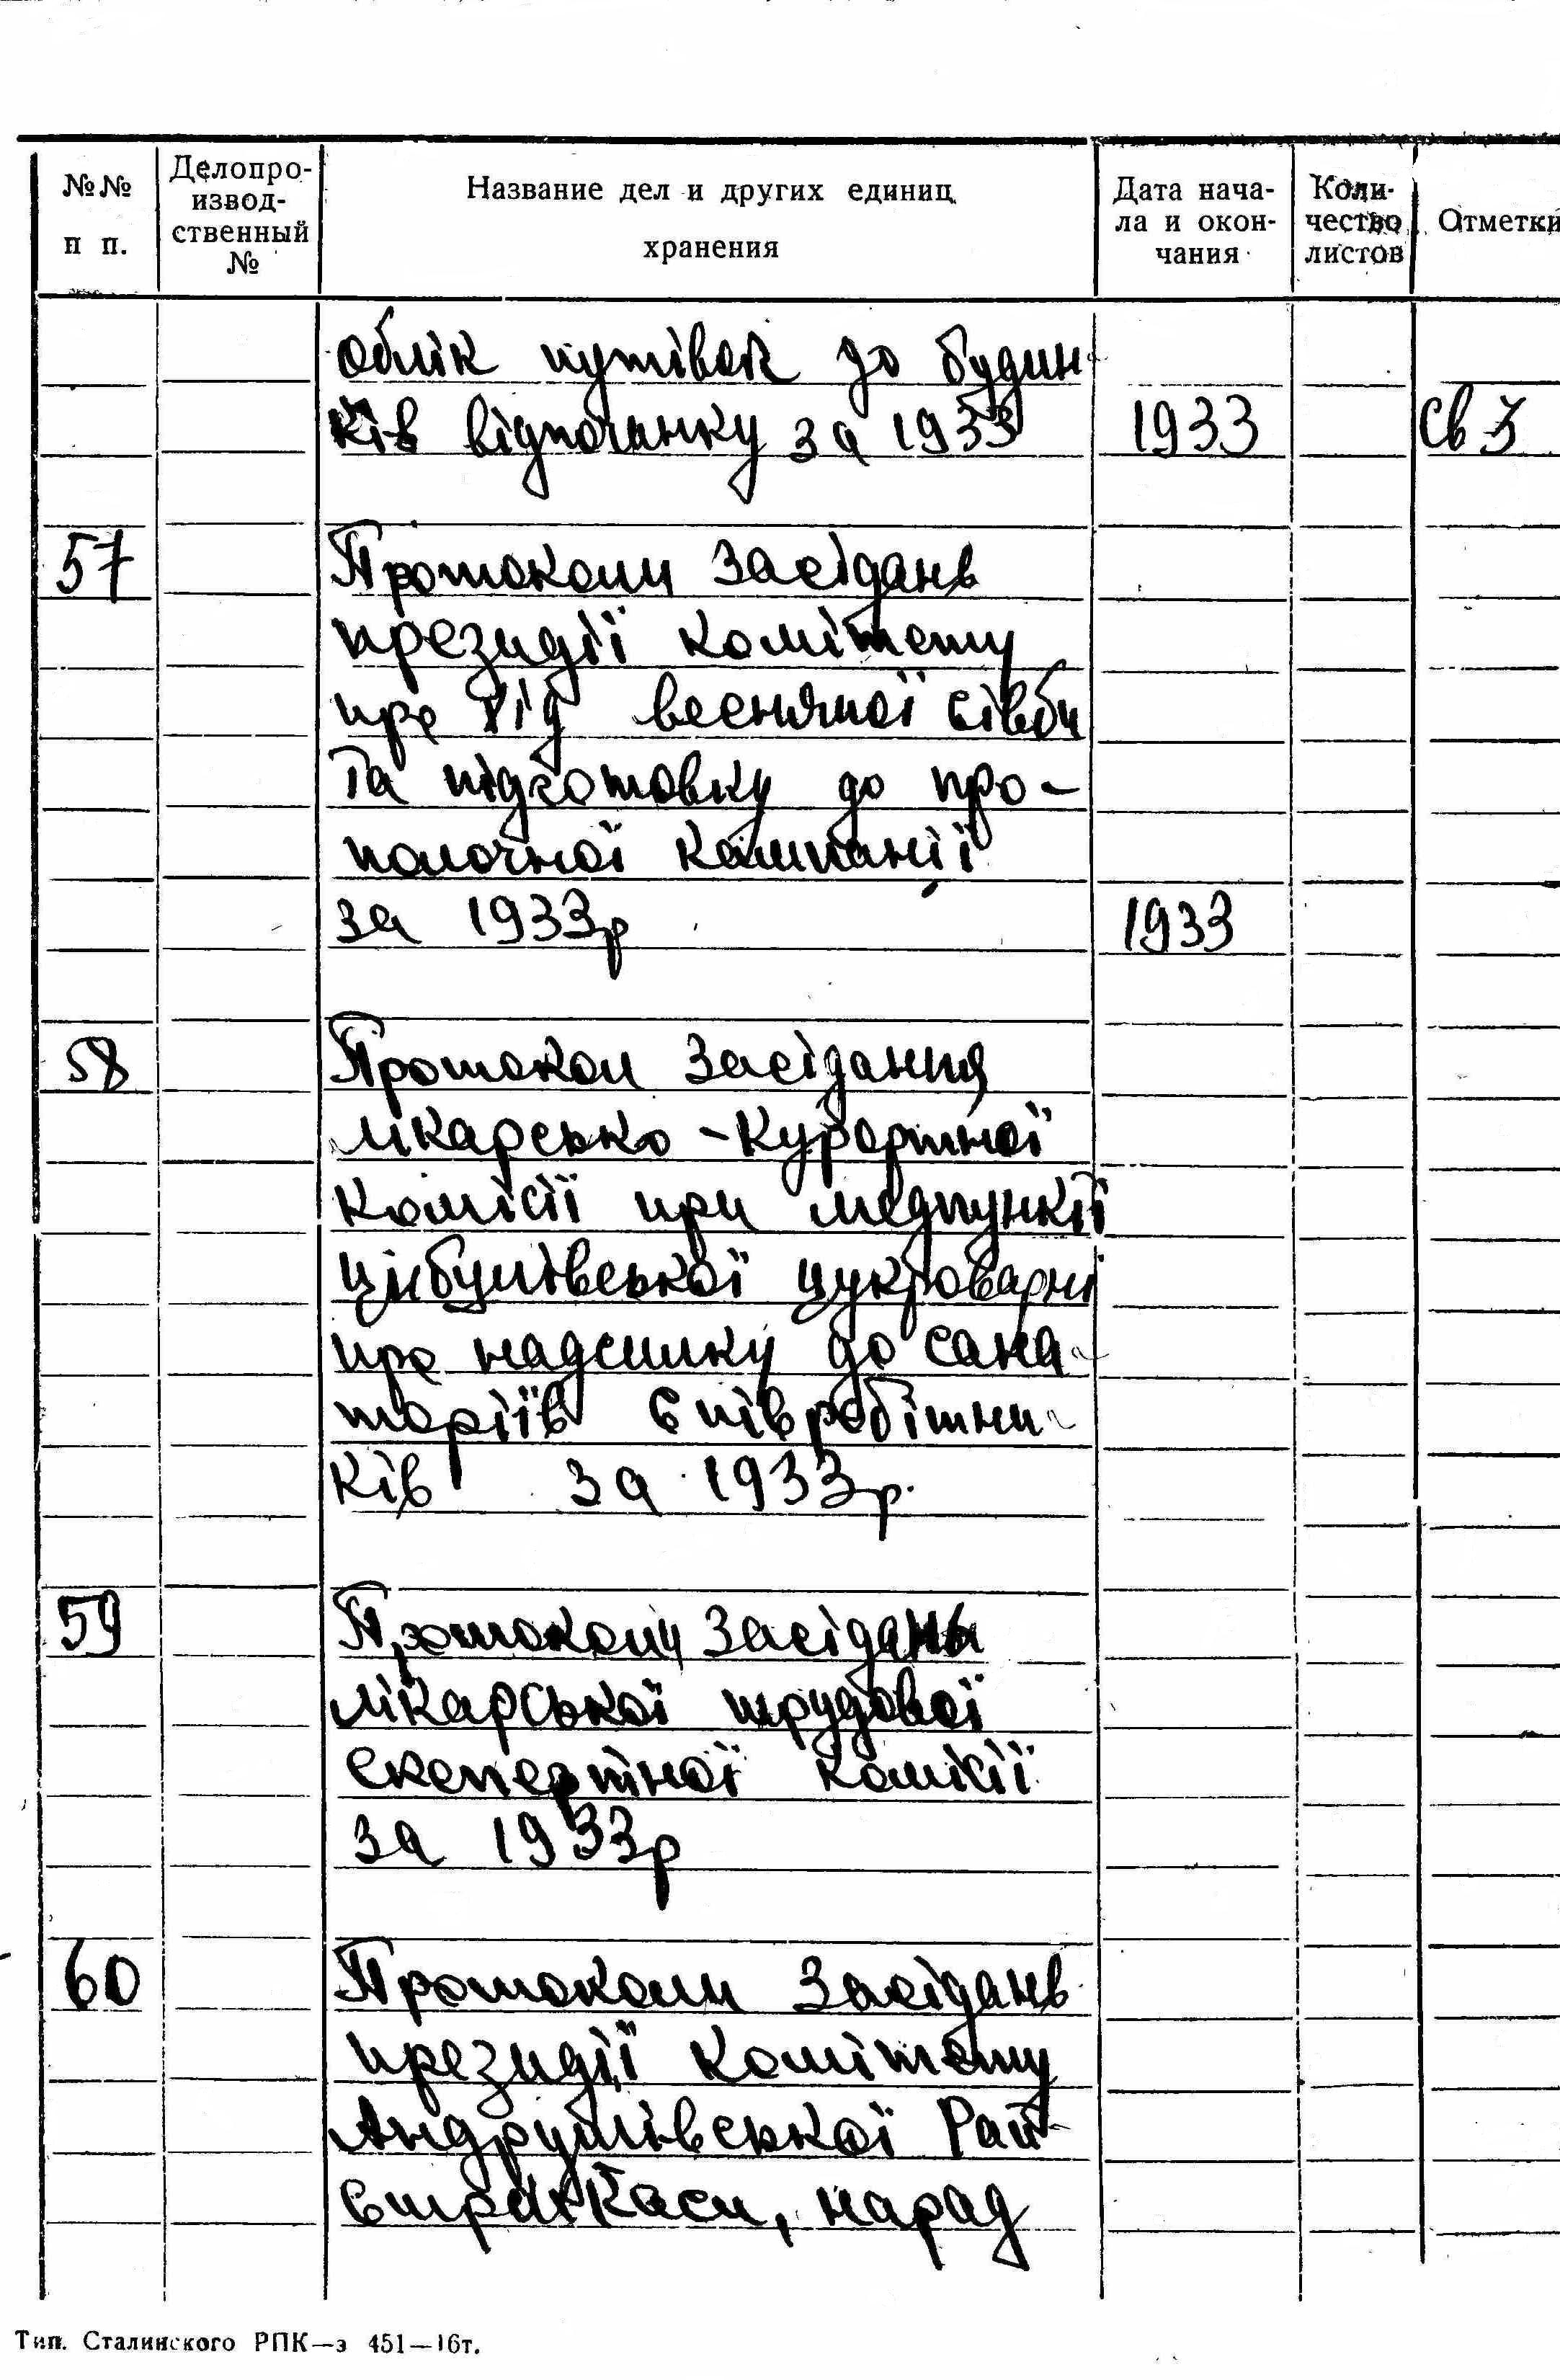 №№ п п.
Делопро-
извод-
ственный
№
Название дел и других единиц
хранения
Дата нача-
ла и окон-
чания
Коли-
чество
листов
Отметки
облік путівок до будин-
ків відпочинку за 1933 1933 св 3
57 Протоколи засідань
президії комітету
про хід весняної сівби
та підготовку до про-
полочної кампанії
за 1933р 1933
58 Протокол засідання
лікарсько-курортної
комісії при медпункті
Цибулівської цукроварні
про надсилку до сана-
торіїв співробітни-
ків за 1933р.
59 Протоколи засідань
лікарської трудової
експертної комісії
за 1933р
60 Протоколи засідань
президії комітету
Андрушівської Рай-
страхкаси, нарад
Тип. Сталинского РПК—з 451—16т.